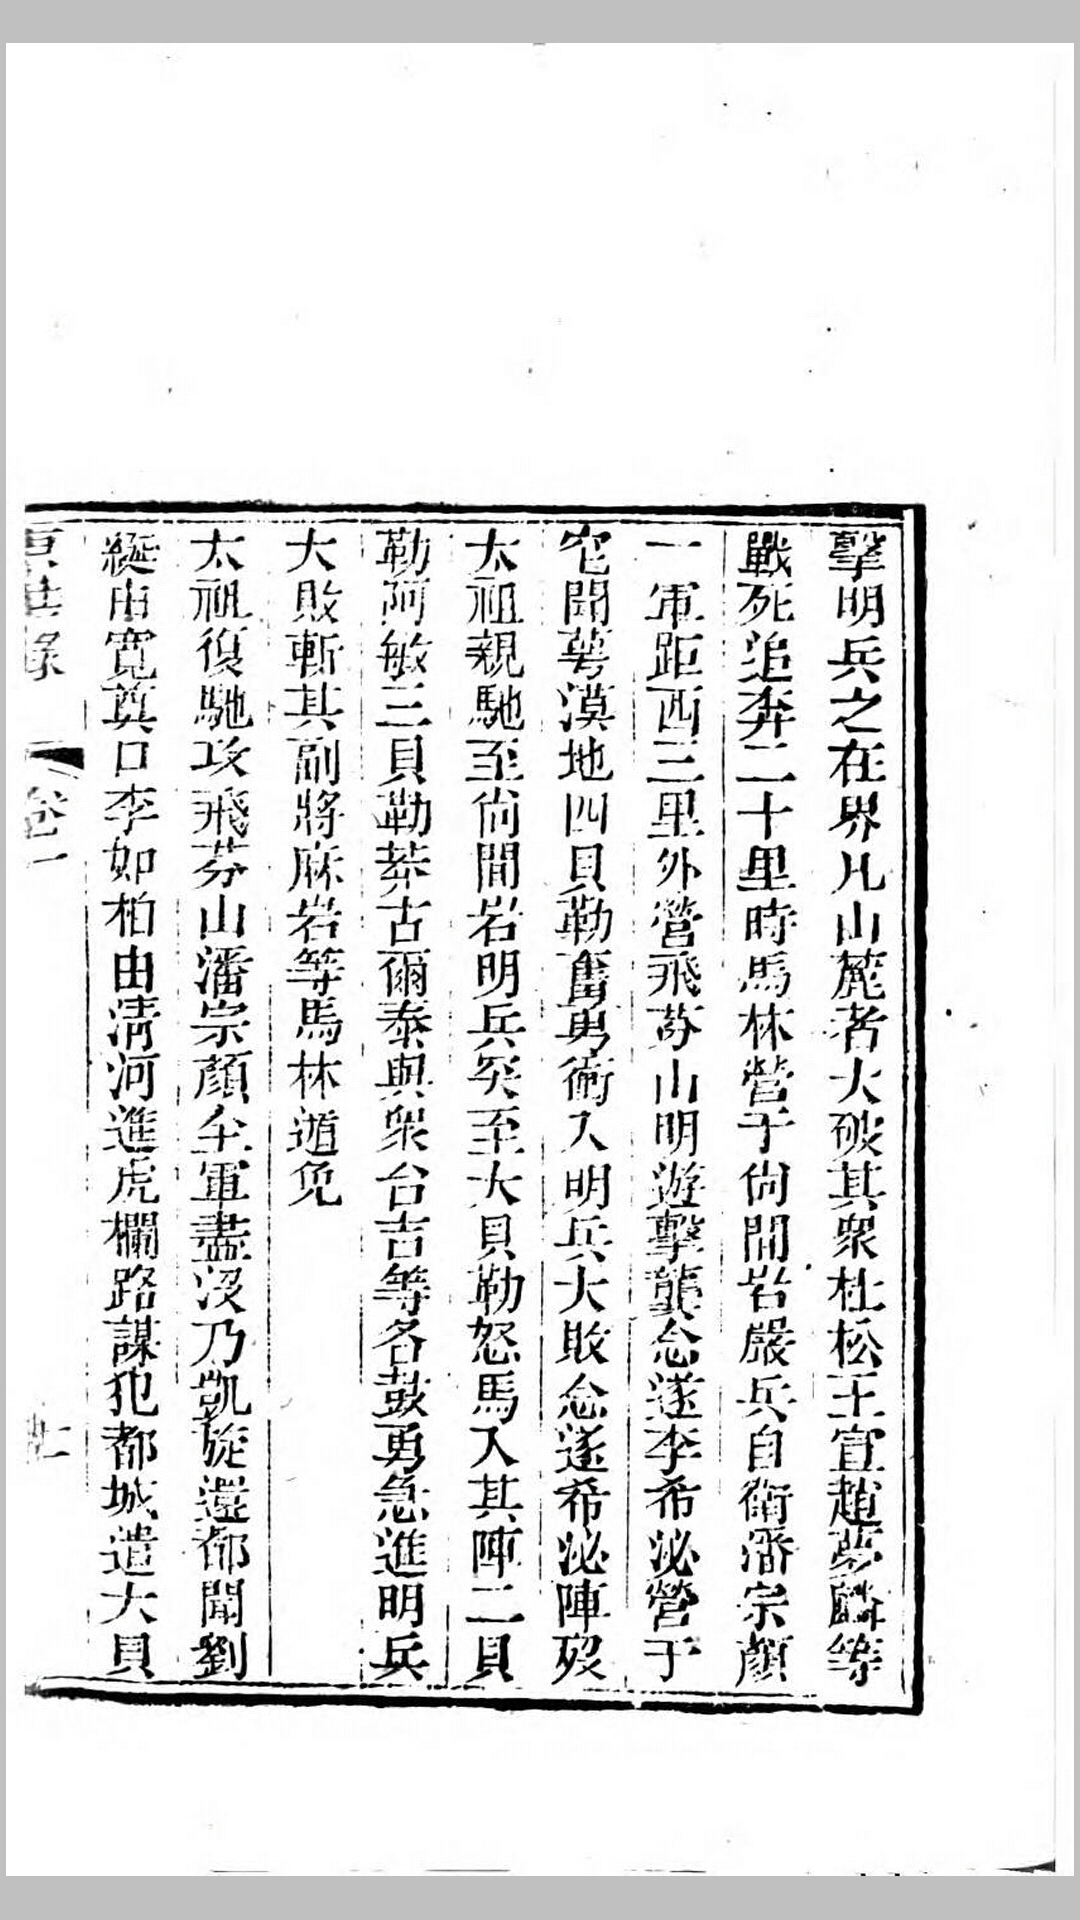 擊明兵之在界凡山麓者大破其衆杜松王宣趙夢麟等
戰死追奔二十里時馬林營于尙間岩嚴兵自衞潘宗顏
一軍距西三里外營飛芬山明遊擊龔念遂李希泌營于
聞蕚漠地四貝勒奮勇衝入明兵大敗念遂希泌陣歿
太祖親馳至尙間岩明兵突至大貝勒怒馬入其陣二貝
勒阿敏三貝勒莽古爾泰與衆台吉等各鼓勇急進明兵
大敗斬其副將麻岩等馬林遁免
太祖復馳攻飛芬山潘宗顏全軍盡沒乃凱旋還都聞劉
綎由寬奠口李如柏由淸河進虎欄路謀犯都城遣大貝
卷一